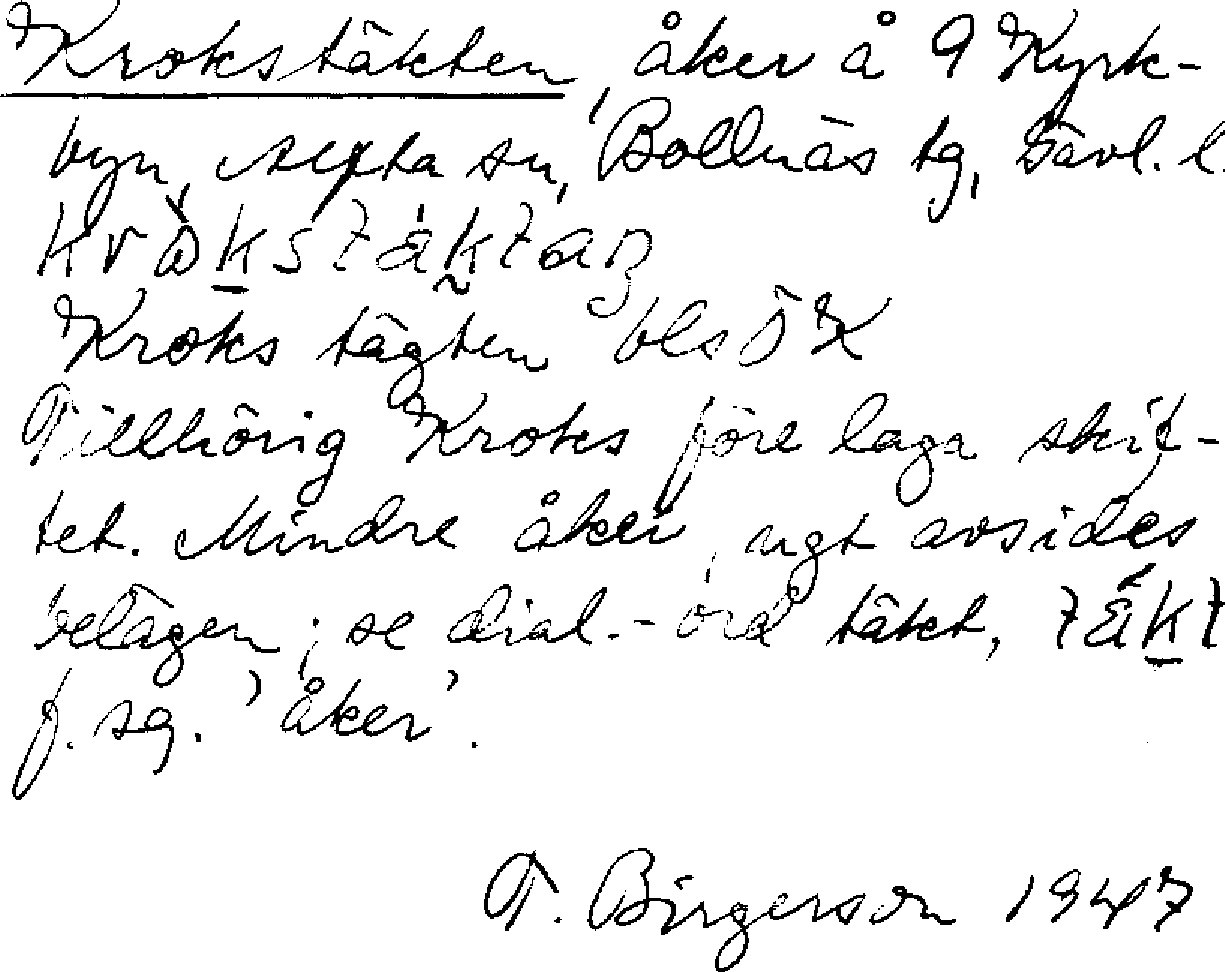 Krokstäkten, åker å 9 Kyrk-
byn, Alfta sn, Bollnäs tg, Gävl. l.
Kroks tägten blsöK
Tillhörig Kroks före laga skif-
tet. Mindre åker, ngt avsides
belägen; se dial.-ord täkt,
f. sg. 'åker'.
T. Birgerson 1947